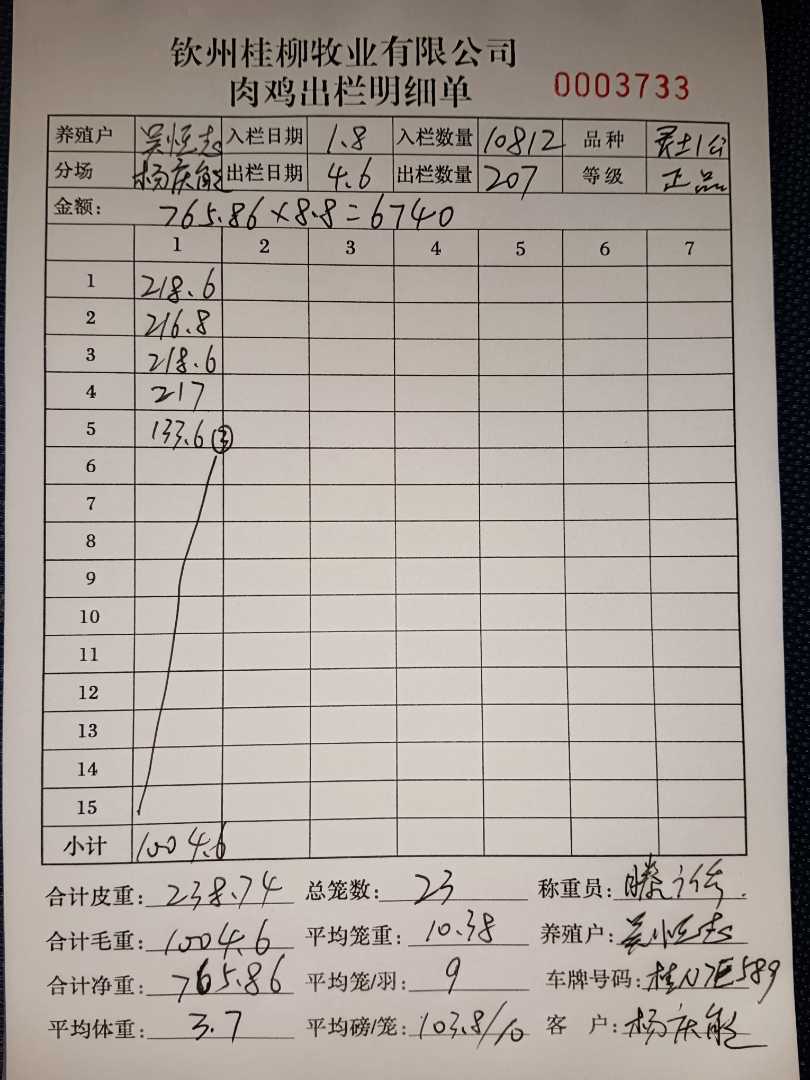 钦州桂柳牧业有限公司
肉鸡出栏明细单 0003733
养殖户 吴恒志 入栏日期 1.8 入栏数量 10812 品种 灵土1公
分场 杨庆能 出栏日期 4.6 出栏数量 207 等级 正品
金额: 765.86×8.8=6740
1 2 3 4 5 6 7
1 218.6
2 216.8
3 218.6
4 217
5 133.6 ③
6
7
8
9
10
11
12
13
14
15
小计 1004.6
合计皮重: 238.74 总笼数: 23 称重员: 滕
合计毛重: 1004.6 平均笼重: 10.38 养殖户: 吴恒志
合计净重: 765.86 平均笼/羽: 9 车牌号码: 桂N7E589
平均体重: 3.7 平均磅/笼: 103.8/10 客 户: 杨庆能